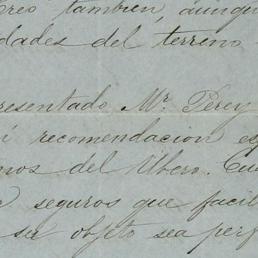 creo tambien, aunqu
dades del terreno
resentado Mr. Percy
í recomendacion es
nos del Ubero. Cu
seguros que facil
su objeto sea perf